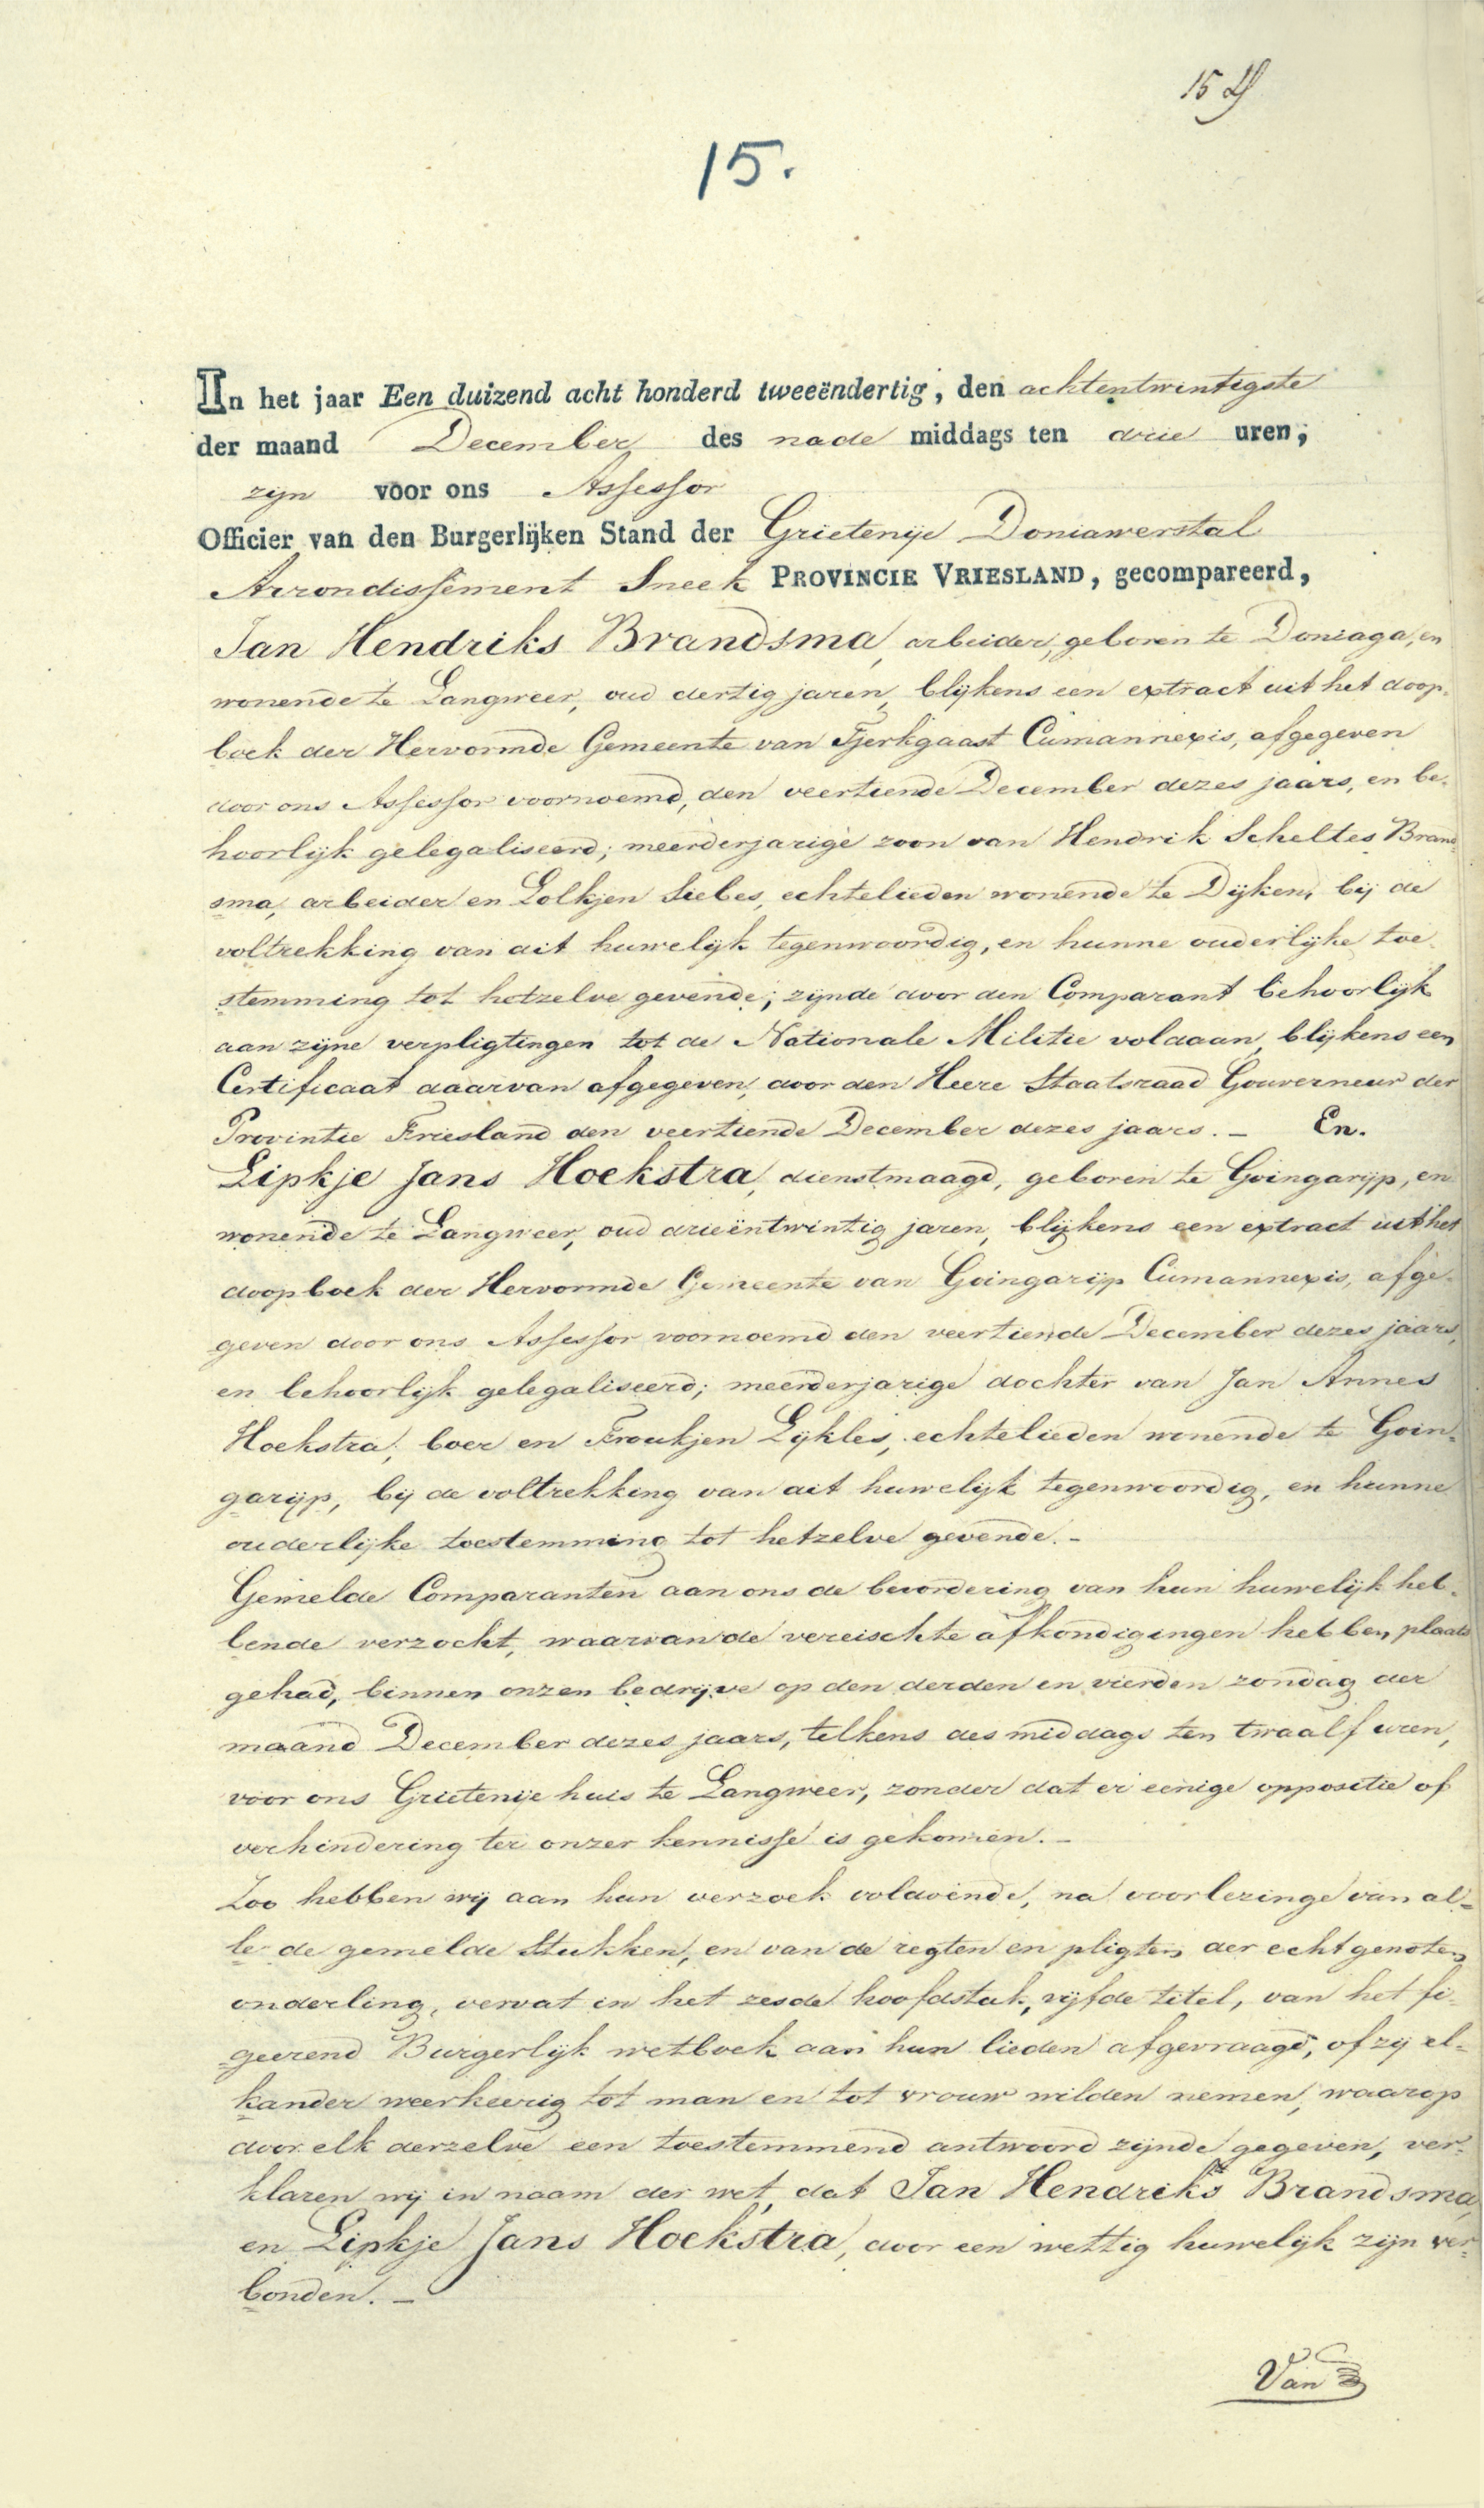 15
15.
In het jaar Een duizend acht honderd tweeëndertig, den achtentwintigste
der maand December des nade middags ten drie uren,
zijn voor ons Assessor
Officier van den Burgerlijken Stand der Grietenije Doniawerstal
Arrondissement Sneek PROVINCIE VRIESLAND, gecompareerd,
Jan Hendriks Brandsma, arbeider, geboren te Doniaga, en
wonende te Langweer, oud dertig jaren, blijkens een extract uit het doop-
boek der Hervormde Gemeente van Tjerkgaast Cumannexis, afgegeven
door ons Assessor voornoemd, den veertiende December dezes jaars, en be-
hoorlijk gelegaliseerd; meerderjarige zoon van Hendrik Scheltes Brand
sma, arbeider en Lolkjen Siebes, echtelieden wonende te Dijken, bij de
voltrekking van dit huwelijk tegenwoordig, en hunne ouderlijke toe-
stemming tot hetzelve gevende; zijnde door den Comparant behoorlijk
aan zijne verpligtingen tot de Nationale Militie voldaan, blijkens een
Certificaat daarvan afgegeven, door den Heere Staatsraad Gouverneur der
Provintie Friesland den veertiende December dezes jaars. - En.
Lipkje Jans Hoekstra, dienstmaagd, geboren te Goingarijp, en
wonende te Langweer, oud drieëntwintig jaren, blijkens een extract uit het
doopboek der Hervormde Gemeente van Goingarijp Cumannexis, afge-
geven door ons Assessor voornoemd den veertiende December dezes jaars,
en behoorlijk gelegaliseerd; meerderjarige dochter van Jan Annes
Hoekstra, boer en Froukjen Lijkles, echtelieden wonende te Goin-
garijp, bij de voltrekking van dit huwelijk tegenwoordig, en hunne
ouderlijke toestemming tot hetzelve gevende. -
Gemelde Comparanten aan ons de bevordering van hun huwelijk heb-
bende verzocht, waarvan de vereischte afkondigingen hebben plaats
gehad, binnen onzen bedrijve op den derden en vierden zondag der
maand December dezes jaars, telkens des middags ten twaalf uren,
voor ons Grietenije huis te Langweer, zonder dat er eenige oppositie of
verhindering ter onzer kennisse is gekomen. -
Zoo hebben wij aan hun verzoek voldoende, na voorlezinge van al-
le de gemelde Stukken, en van de regten en pligten der echtgenoten
onderling, vervat in het zesde hoofdstuk, vijfde titel, van het fi-
geerend Burgerlijk wetboek aan hun lieden afgevraagd, of zij el-
kander weerkeerig tot man en tot vrouw wilden nemen, waarop
door elk derzelve een toestemmend antwoord zijnde gegeven, ver-
klaren wij in naam der wet, dat Jan Hendriks Brandsma,
en Lipkje Jans Hoekstra, door een wettig huwelijk zijn ver-
bonden. -
Van